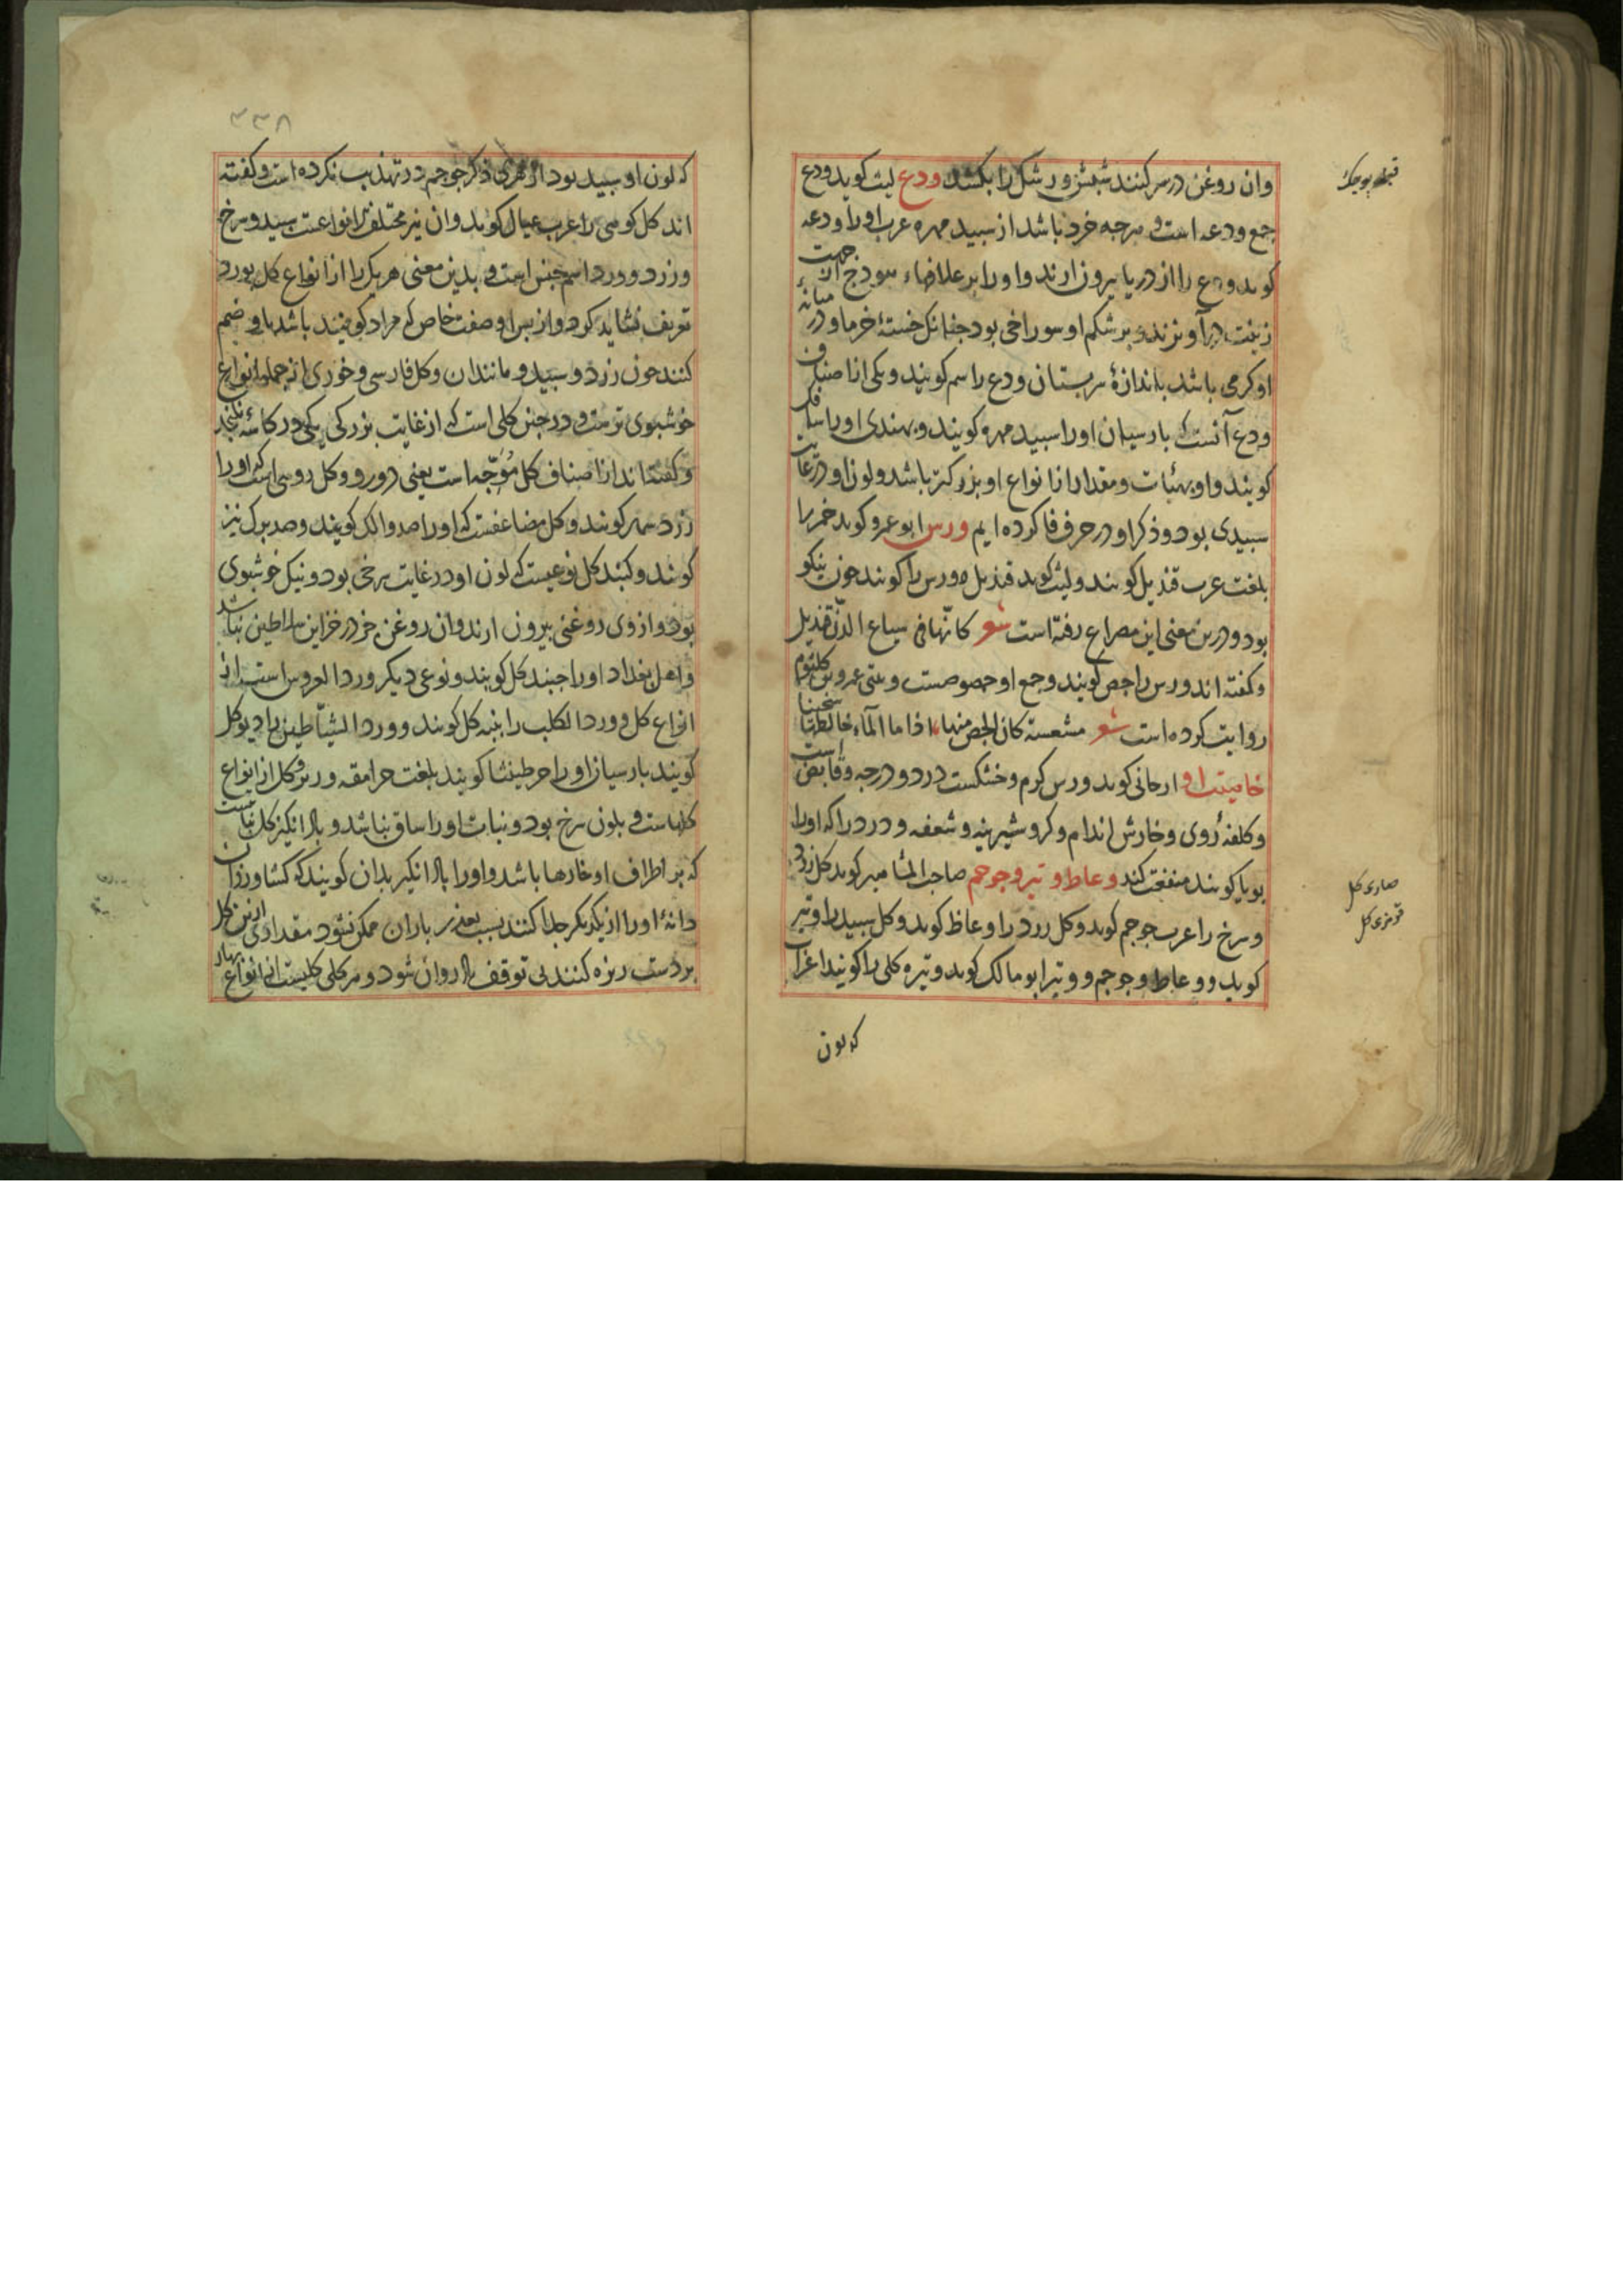 وان روغن در سر کنند شبش و رشک را بکشد ودع لیث کوید ودع
جمع ودعه است و هرجه خرد باشد از سبید مهره عرب او را ودعه
کوید ودع را از دریا بیرون ارند و او را بر علاقهاء هودج از جهت
زینت در آویزند و بر شکم او سوراخی بود جنانک خستهٔ خرما و در میانهٔ
او کرمی باشد باندازهٔ سر بستان ودع را سم کویند ویکی از اصناف
ودع آنست که بارسیان او را سبید مهره کویند و بهندی او را
کویند و او بهیات و مقدار از انواع او بزرکتر باشد ولون او در غایت
سبیدی بود و ذکر او در حرف فا کرده ایم ورس ابو عمرو کوید خمر را
بلغت عرب قندیل کویند ولیث کوید قندیل ورس را کویند جون نیکو
بود و درین معنی این مصراع رفته است شعر کانها فی سیاع الدن قندیل
و کفته اند ورس را حص کویند وجمع او حصوصست و بیتی عمرو بن کلثوم
روایت کرده است شعر مشعشعة کان الحص فیها اذا ما المآء خالطها سخینا
خاصیت او ارجانی کوید ورس کرم وخشکست در دو درجه وقابض است
وکلفهٔ روی وخارش اندام وکر وشیرینه وشعفه و درد را که اورا
بویا کویند منفعت کند وعاط وتیر وجوجم صاحب المشاهیر کوید کل زرد
وسرخ را عرب جوجم کوید وکل زرد را وعاظ کوید وکل سبید را وتیر
کوید و وعاط وجوجم و وتیر ابو مالک کوید وتیره کلی را کویند اغراب
که لون
قبله بوجک
صاری کل
قرمزی کل
۳۳۸
که لون او سبید بود ازهری ذکر جوجم در تهذیب نکرده است وکفته
اند کل کوهی را عرب عبال کوید وان نیز مختلف انواعست سبید وسرخ
وزرد و ورد اسم جنس است و بدین معنی هر یک را از انواع کل بورد
تعریف نشاید کرد واز بس او صفت خاص که مراد کوینده باشد باو ضم
کنند جون زرد و سبید و مانند ان وکل فارسی و خوزی از جمله انواع
خوشبوی ترست و در جنس کلی است که از غایت بزرکی یکی در کاسهٔ نکنجد
وکفته اند از اصناف کل مُوَجّه است یعنی دو رو و کل رومی است که او را
زرد کویند وکل مضاعفست که او را صد والک کویند وصد برک نیز
کویند و کبند کل نوعیست که لون او در غایت سرخی بود ونیک خوشبوی
بود و از وی روغنی بیرون ارند وان روغن جز در خزاین سلاطین نباشد
و اهل بغداد او را جنبد کل کویند و نوعی دیکر ورد العروس است از
انواع کل و ورد الکلب را بنبه کل کویند و ورد الشیاطین را دیو کل
کویند بارسیان او را کویند بلغت جرامقه و کل از انواع
کلهاست و بلون سرخ بود و نبات او را ساق نباشد و باد انکیز کل نباتیست
که بر اطراف او خارها باشد و او را باد انکیز بدان کویند که کشاورزان
دانهٔ او را از یکدیکر جدا کنند بسبب بعذر باران ممکن نشود مقداری ازین کل
بر دست ریزه کنند بی توقف باد روان شود و هر کلی کلیست از انواع بهار